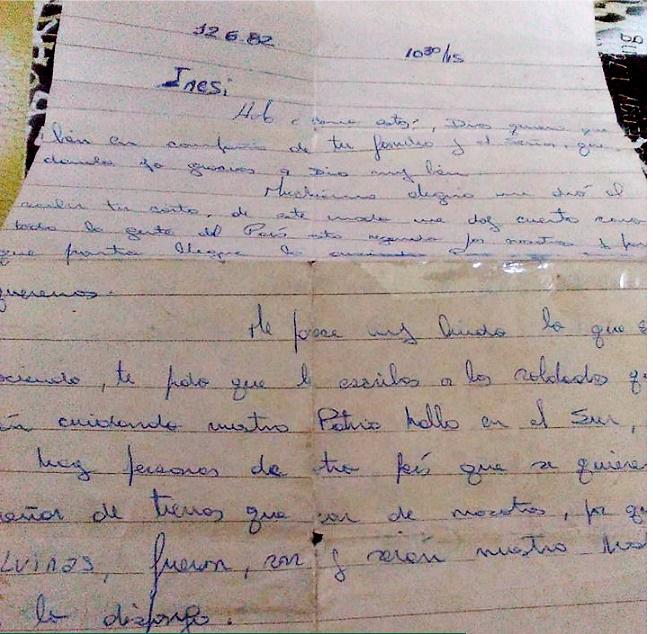 12 6.82
10³⁰/15
Ines:
Hola ¿como estas?, Dios quiera que
bien en compañia de tu familia y el Señor, que
dando yo gracias a Dios muy bien
Muchisima alegria me dió el
recibir tu carta, de este modo me doy cuenta como
toda la gente del Pais esta rezando por nosotros y para
que pronto llegue la
queremos.
Me parece muy lindo lo que e
aciendo, te pido que le escribas a los soldados q
án cuidando nuestra Patria hallo en el Sur,
hay personas de tro país que se quiere
eñar de tierras que son de nosotros, por qu
lvinas, fueron, son y serán nuestra
lo disponga.